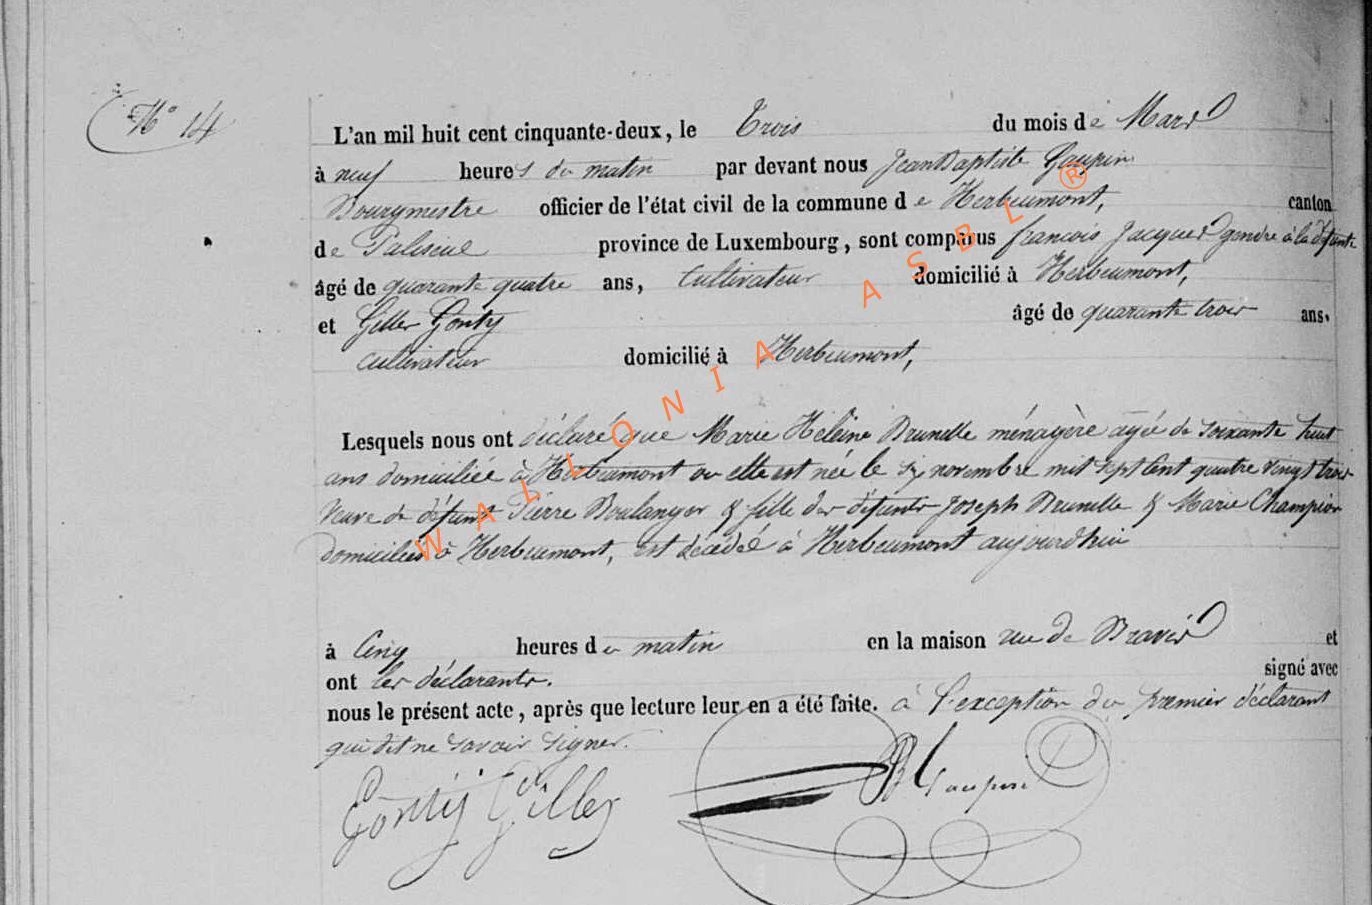 N° 14
L'an mil huit cent cinquante-deux, le Trois du mois de Mars
à neuf heures du matin par devant nous Jean Baptiste Gaupin
Bourgmestre officier de l'état civil de la commune de Herbeumont, canton
de Paliseul province de Luxembourg, sont comparus francois Jacques gendre à la défunte
âgé de quarante quatre ans, Cultivateur domicilié à Herbeumont,
et Gilles Gonty âgé de quarante trois ans.
cultivateur domicilié à Herbeumont,
Lesquels nous ont déclaré que Marie Hélène Brunelle ménagère agée de soixante huit
ans domiciliée à Herbeumont ou elle est née le six novembre mil sept cent quatre vingt trois
Veuve de défunt Pierre Boulanger & fille des défunts Joseph Brunelle & Marie Champion
domiciliés à Herbeumont, est décédé à Herbeumont aujourdhui
à Cinq heures du matin en la maison rue de et
ont les déclarants. signé avec
nous le présent acte, après que lecture leur en a été faite. à l'exception du premier déclarant
qui dit ne savoir signer.
Gonty Gilles JB Gaupin
WALLONIA ASBL ®